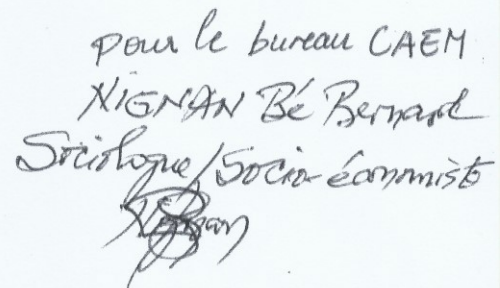 pour le bureau CAEM
NIGNAN Bé Bernard
Sociologue/Socio-économiste
Nignan